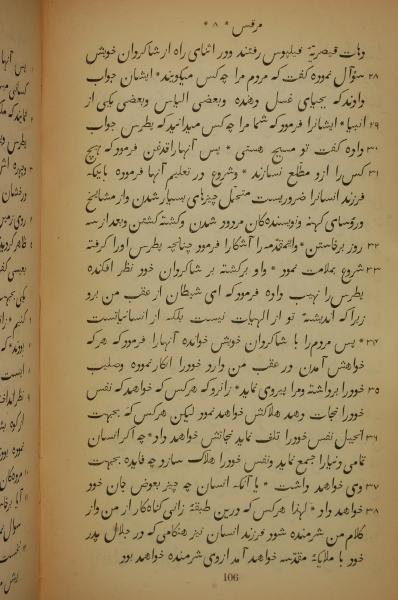 مرقس * ۸ *
دهات قیصریهٔ فیلپوس رفتند و در اثنای راه از شاکردان خویش
۲۸ سؤآل نموده کفت که مردم مرا چه کس میکویند * ایشان جواب
دادند که یحیای غسل دهنده و بعضی الیاس و بعضی یکی از
۲۹ انبیا * ایشانرا فرمود که شما مرا چه کس میدانید که پطرس جواب
۳۰ داده کفت تو مسیح هستی * پس آنها را قدغن فرمود که هیچ
۳۱ کس را از و مطّلع نسازند * و شروع در تعلیم آنها فرموده باینکه
فرزند انسانرا ضروریست متحمّل چیزهای بسیار شدن و از مشایخ
و رؤسای کهنه و نویسنده‌کان مردود شدن و کشته کشتن و بعد از سه
۳۲ روز برخاستن * و اینمقدّمه را آشکارا فرمود چنانچه پطرس اورا کرفته
۳۳ شروع بملامت نمود * و او برکشته بر شاکردان خود نظر افکنده
پطرس را نهیب داده فرمود که ای شیطان از عقب من برو
زیرا که اندیشهٔ تو از الهیات نیست بلکه از انسانیانست
۳۴ * پس مردم را با شاکردان خویش خوانده آنها را فرمود که هر که
خواهش آمدن در عقب من دارد خود را انکار نموده و صلیب
۳۵ خود را برداشته و مرا پیروی نماید * زانرو که هر کس که خواهد که نفس
خود را نجات دهد هلاکش خواهد نمود لیکن هر کس که بجهت
۳۶ انجیل نفس خود را تلف نماید نجاتش خواهد داد * چه اکر انسان
تمامی دنیا را جمع نماید و نفس خود را هلاک سازد چه فایده بجهت
۳۷ وی خواهد داشت * یا آنکه انسان چه چیز بعوض جان خود
۳۸ خواهد داد * لهذا هر کس که درین طبقهٔ زانی کناه‌کار از من و از
کلام من شرمنده شود فرزند انسان نیز هنکامی که در جلال پدر
خود با ملایکهٔ مقدّسه خواهد آمد از وی شرمنده خواهد بود
106